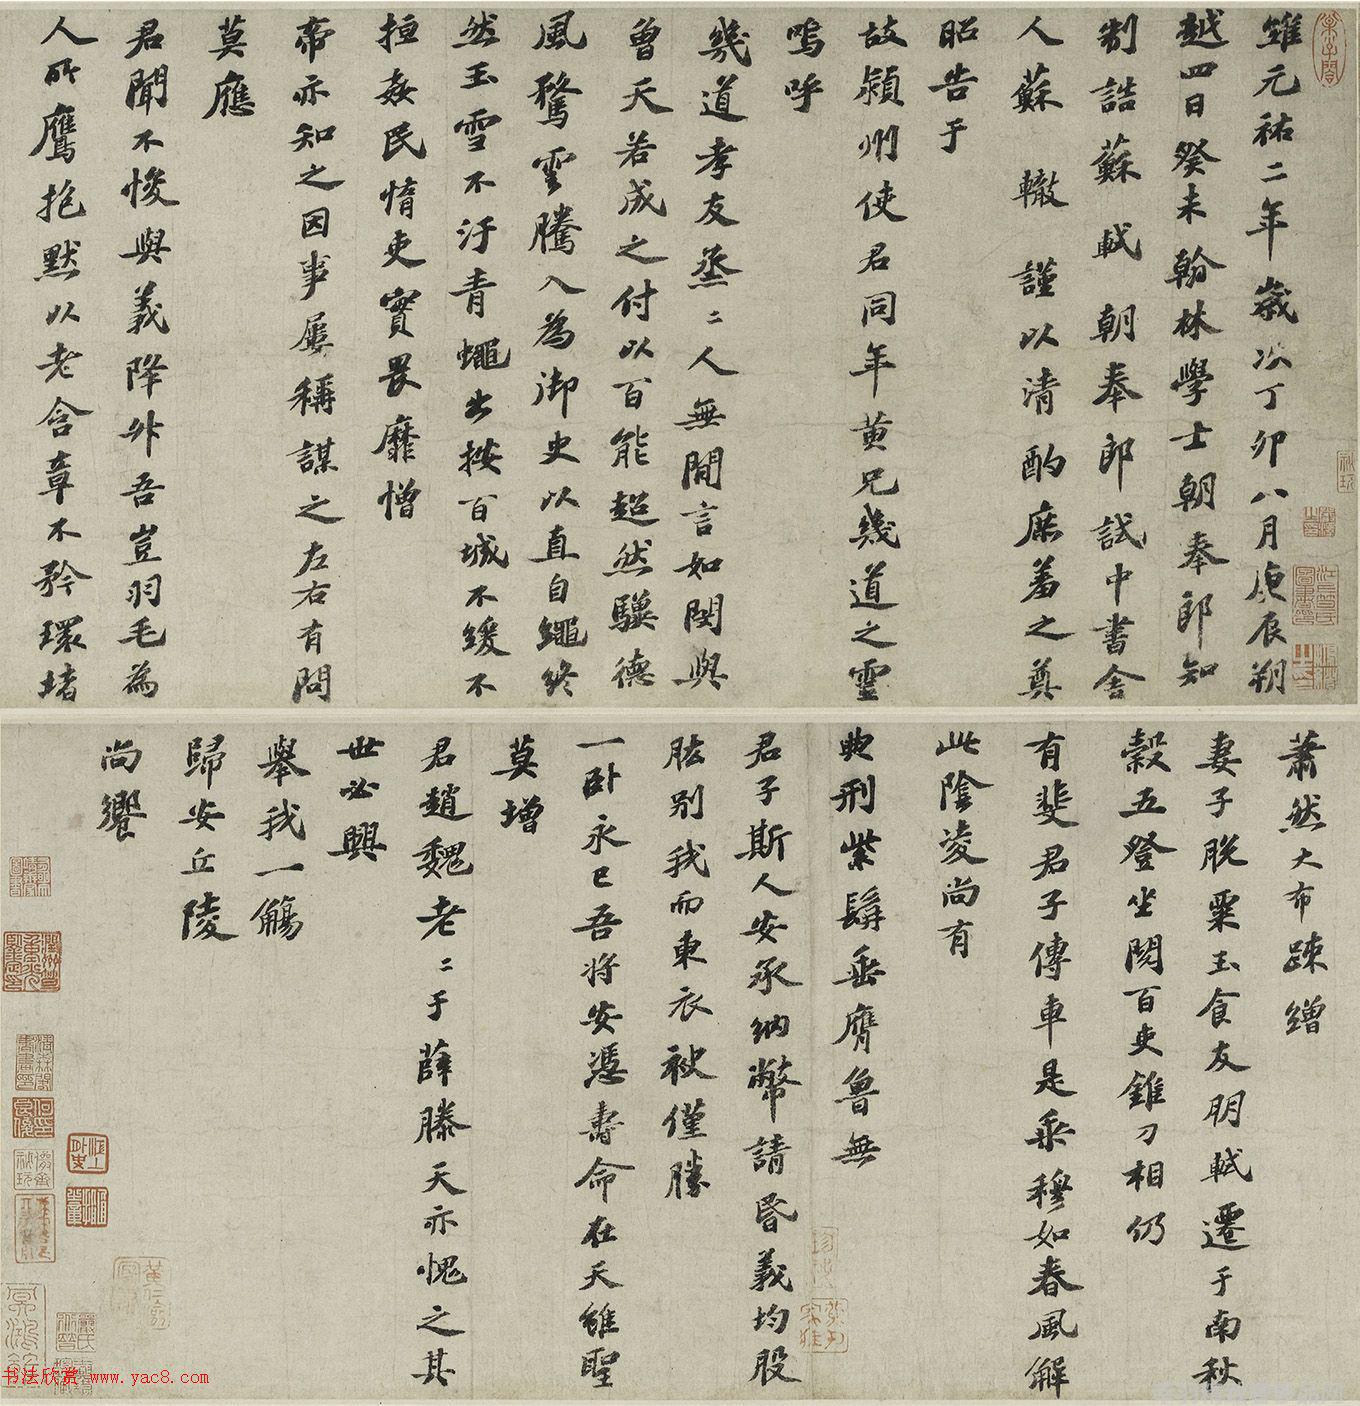 維元祐二年歲次丁卯八月庚辰朔
越四日癸未翰林學士朝奉郎知
制誥蘇軾朝奉郎試中書舍
人蘇轍謹以清酌庶羞之奠
昭告于
故潁州使君同年黃兄幾道之靈
嗚呼
幾道孝友烝二人無間言如閔與
曾天若成之付以百能超然驥德
風騖雲騰入為御史以直自繩終
然玉雪不汙青蠅出按百城不緩不
㮓姦民惰吏實畏靡憎
帝亦知之因事屢稱謀之左右有問
莫應
君聞不悛與義降升吾豈羽毛為
人所鷹抱默以老含章不矜環堵
蕭然大布疎繒
妻子脫粟玉食友朋軾遷于南秋
穀五登坐閱百吏錐刀相仍
有斐君子傳車是乘穆如春風解
此陰凌尚有
典刑紫髯垂膺魯無
君子斯人安承納幣請昏義均股
肱別我而東衣袂僅勝
一卧永已吾將安憑壽命在天雖聖
莫增
君趙魏老二于薛滕天亦愧之其
世必興
舉我一觴
歸安丘陵
尚饗
书法欣赏 www.yac8.com